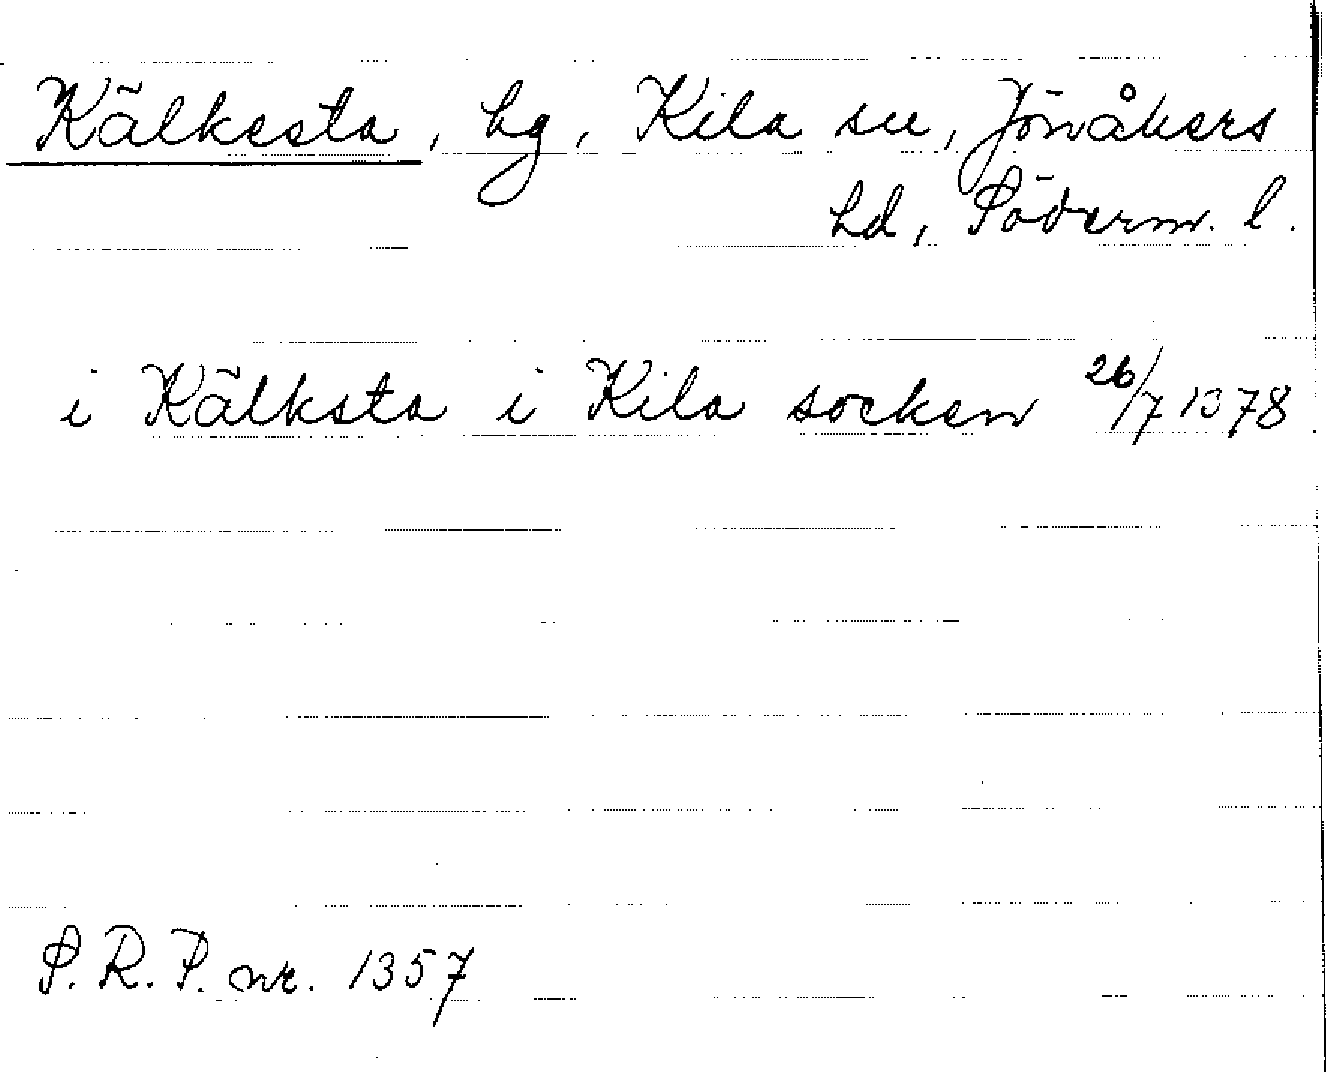 Kälkesta, hg, Kila sn, Jönåkers
hd, Söderm. l.
i Kälksta i Kila socken 26/7 1378
S. R. P. nr. 1357